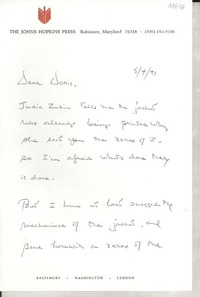 THE JOHNS HOPKINS PRESS Baltimore, Maryland
5/4/71
Dear Doris,
Judie Zubin tells me the jacket
was already being printed when
she sent you the xerox of it,
so I'm afraid what's done
is done.
But I have at last
mechanics of the jacket, and
send herewith a xerox of the
BALTIMORE WASHINGTON LONDON